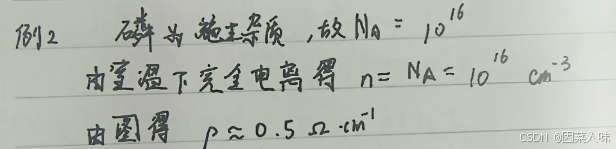 例2 磷为施主杂质,故 N_A = 10^16
由室温下完全电离得 n = N_A = 10^16 cm^-3
由图得 ρ ≈ 0.5 Ω·cm^-1
CSDN @因菜入味